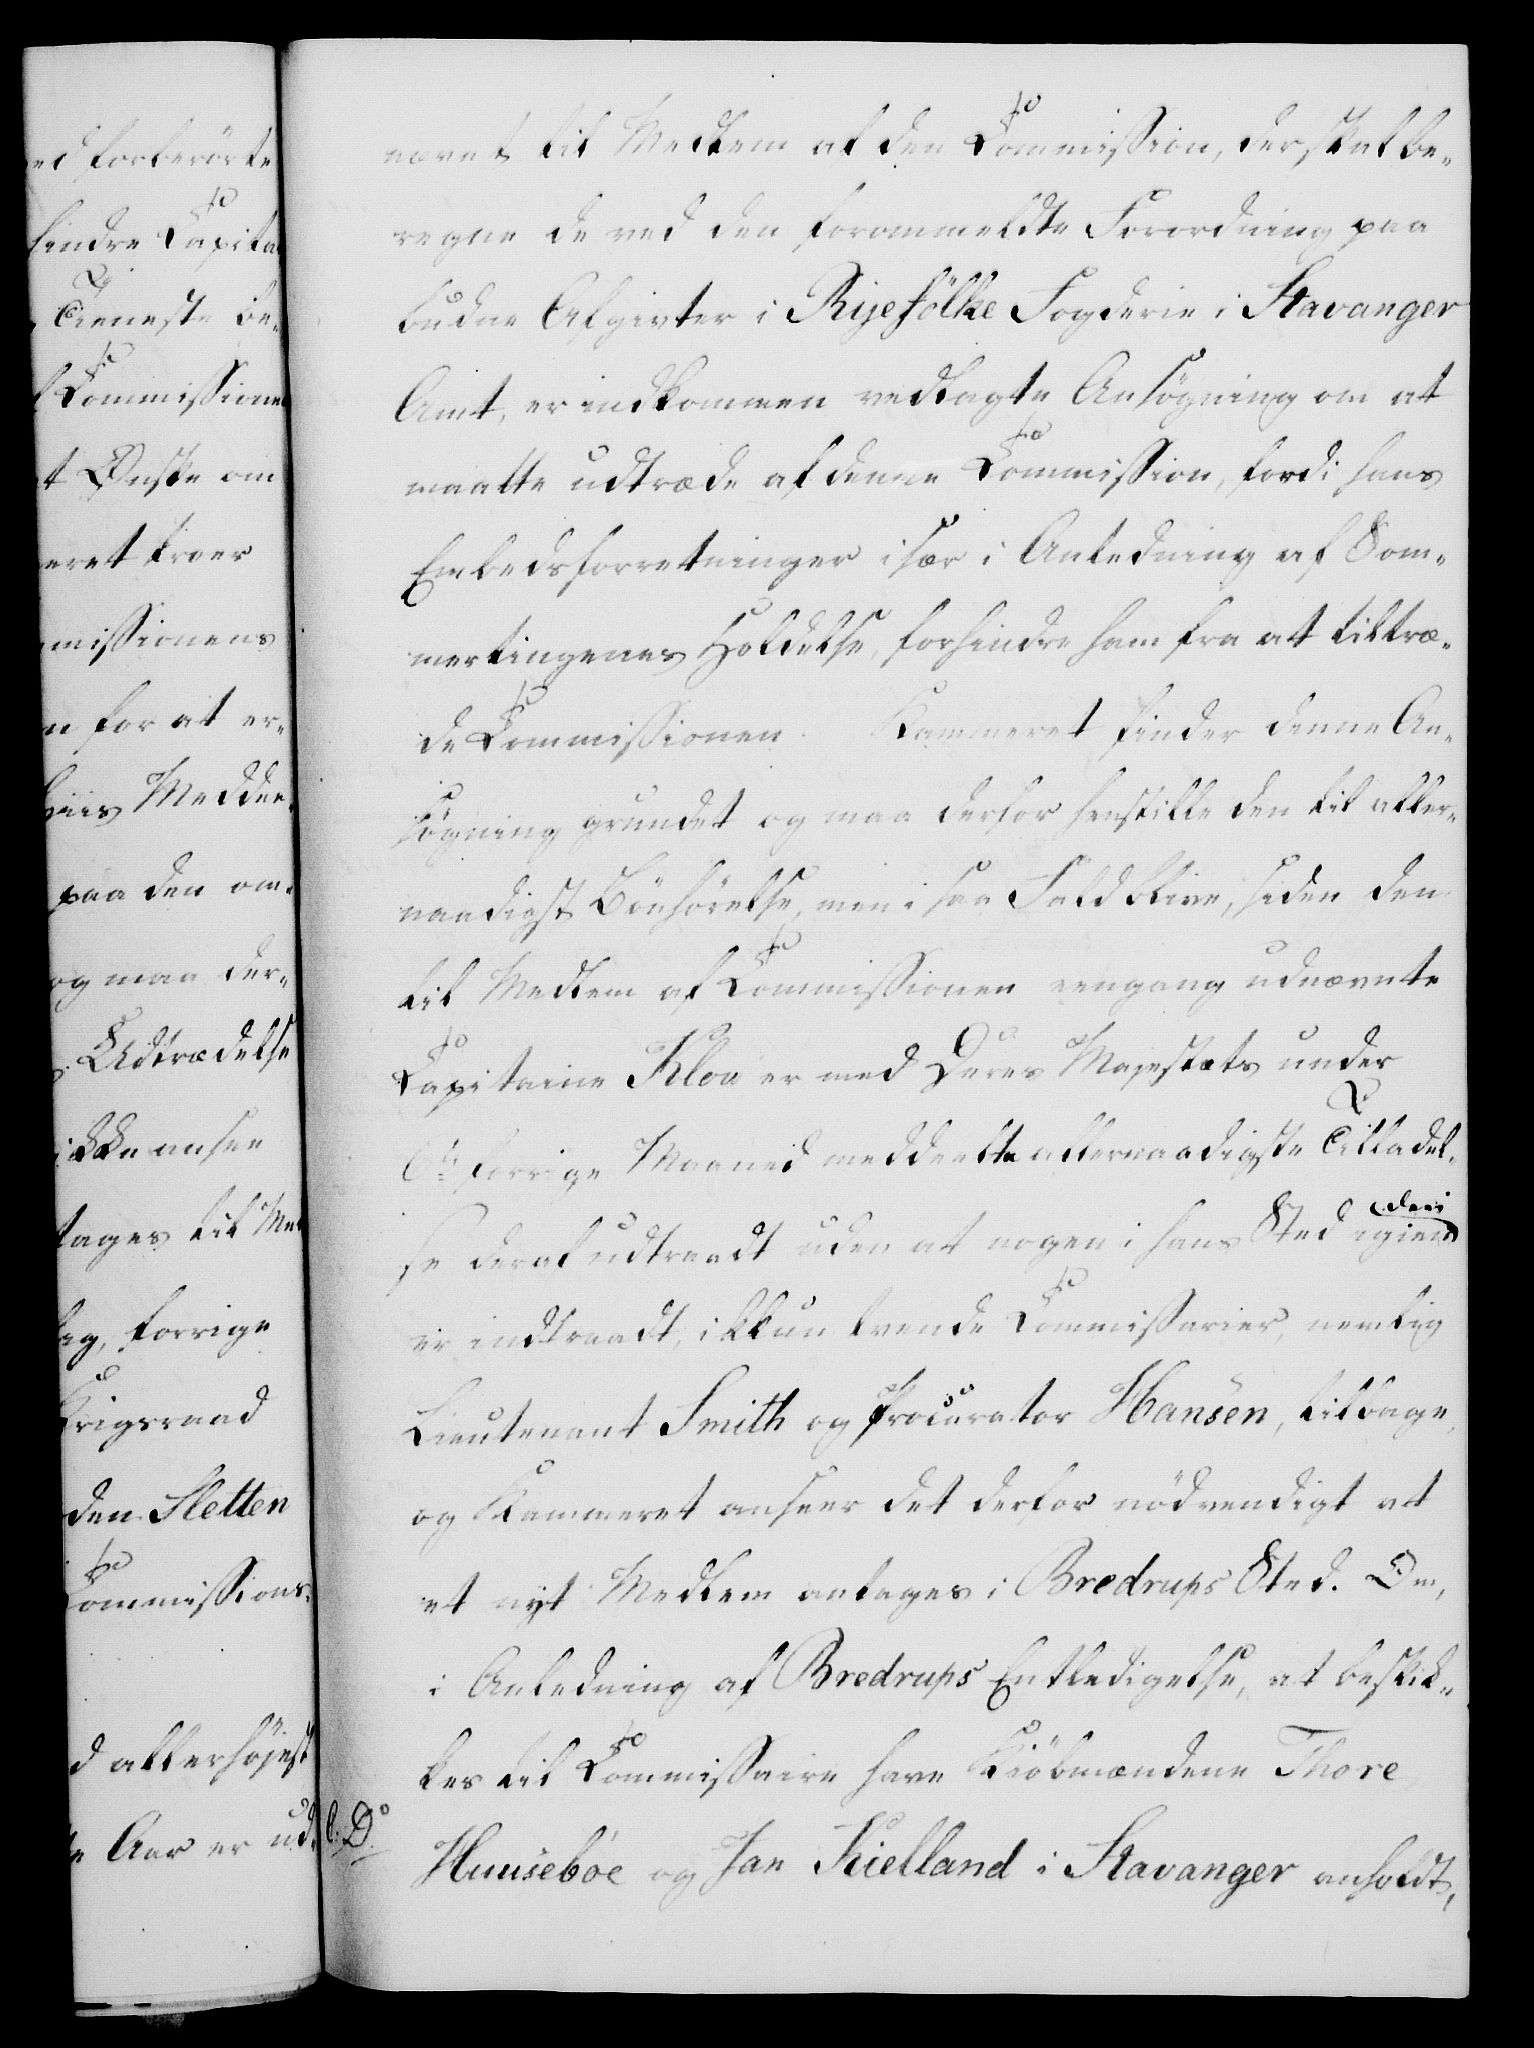 ed forberörte
hindre Capita
Tieneste be-
f Commissione
t Ønske om
eret troer
missionens
n for at er-
Meddee-
paa den om-
og maa der-
Udtrædelse
ikke ansee
tages til Me
forrige
Krigsraad
den Sletten
Commissions-
d allerhöjest
Aar er ud-
nævnt til Medlem af den Commission, der skal be-
regne de ved den forommeldte Forordning paa
budne Afgivter i Ryefölke Fogderie i Stavanger
Amt, er indkommen vedlagte Ansögning om at
maatte udtræde af denne Commission, fordi hans
Embedsforretninger især i Anledning af Som-
mertingenes Holdelse, forhindre ham fra at tiltræ-
de Commissionen. Kammeret finder denne An-
sögning grundet og maa derfor henstille den til aller-
naadigst Bönhörelse, men i saa Fald blive, siden den
til Medlem af Commissionen eengang udnævnte
Capitaine Klou er med Deres Majestæts under
6te forrige Maaned meddeelte allernaadigste Tilladel-
se deraf udtraadt uden at nogen i hans Sted igien
er indtraadt, ikkun tvende Commissarier, nemlig
Lieutenant Smith og Procurator Hansen, tilbage,
og Kammeret anseer det derfor nödvendigt at
et nyt Medlem antages i Bredrups Sted. Om,
i Anledning af Bredrups Entledigelse, at beskik-
kes til Commissaire have Kiöbmændene Thore
Huuseböe og Jan Kielland i Stavanger anholdt,